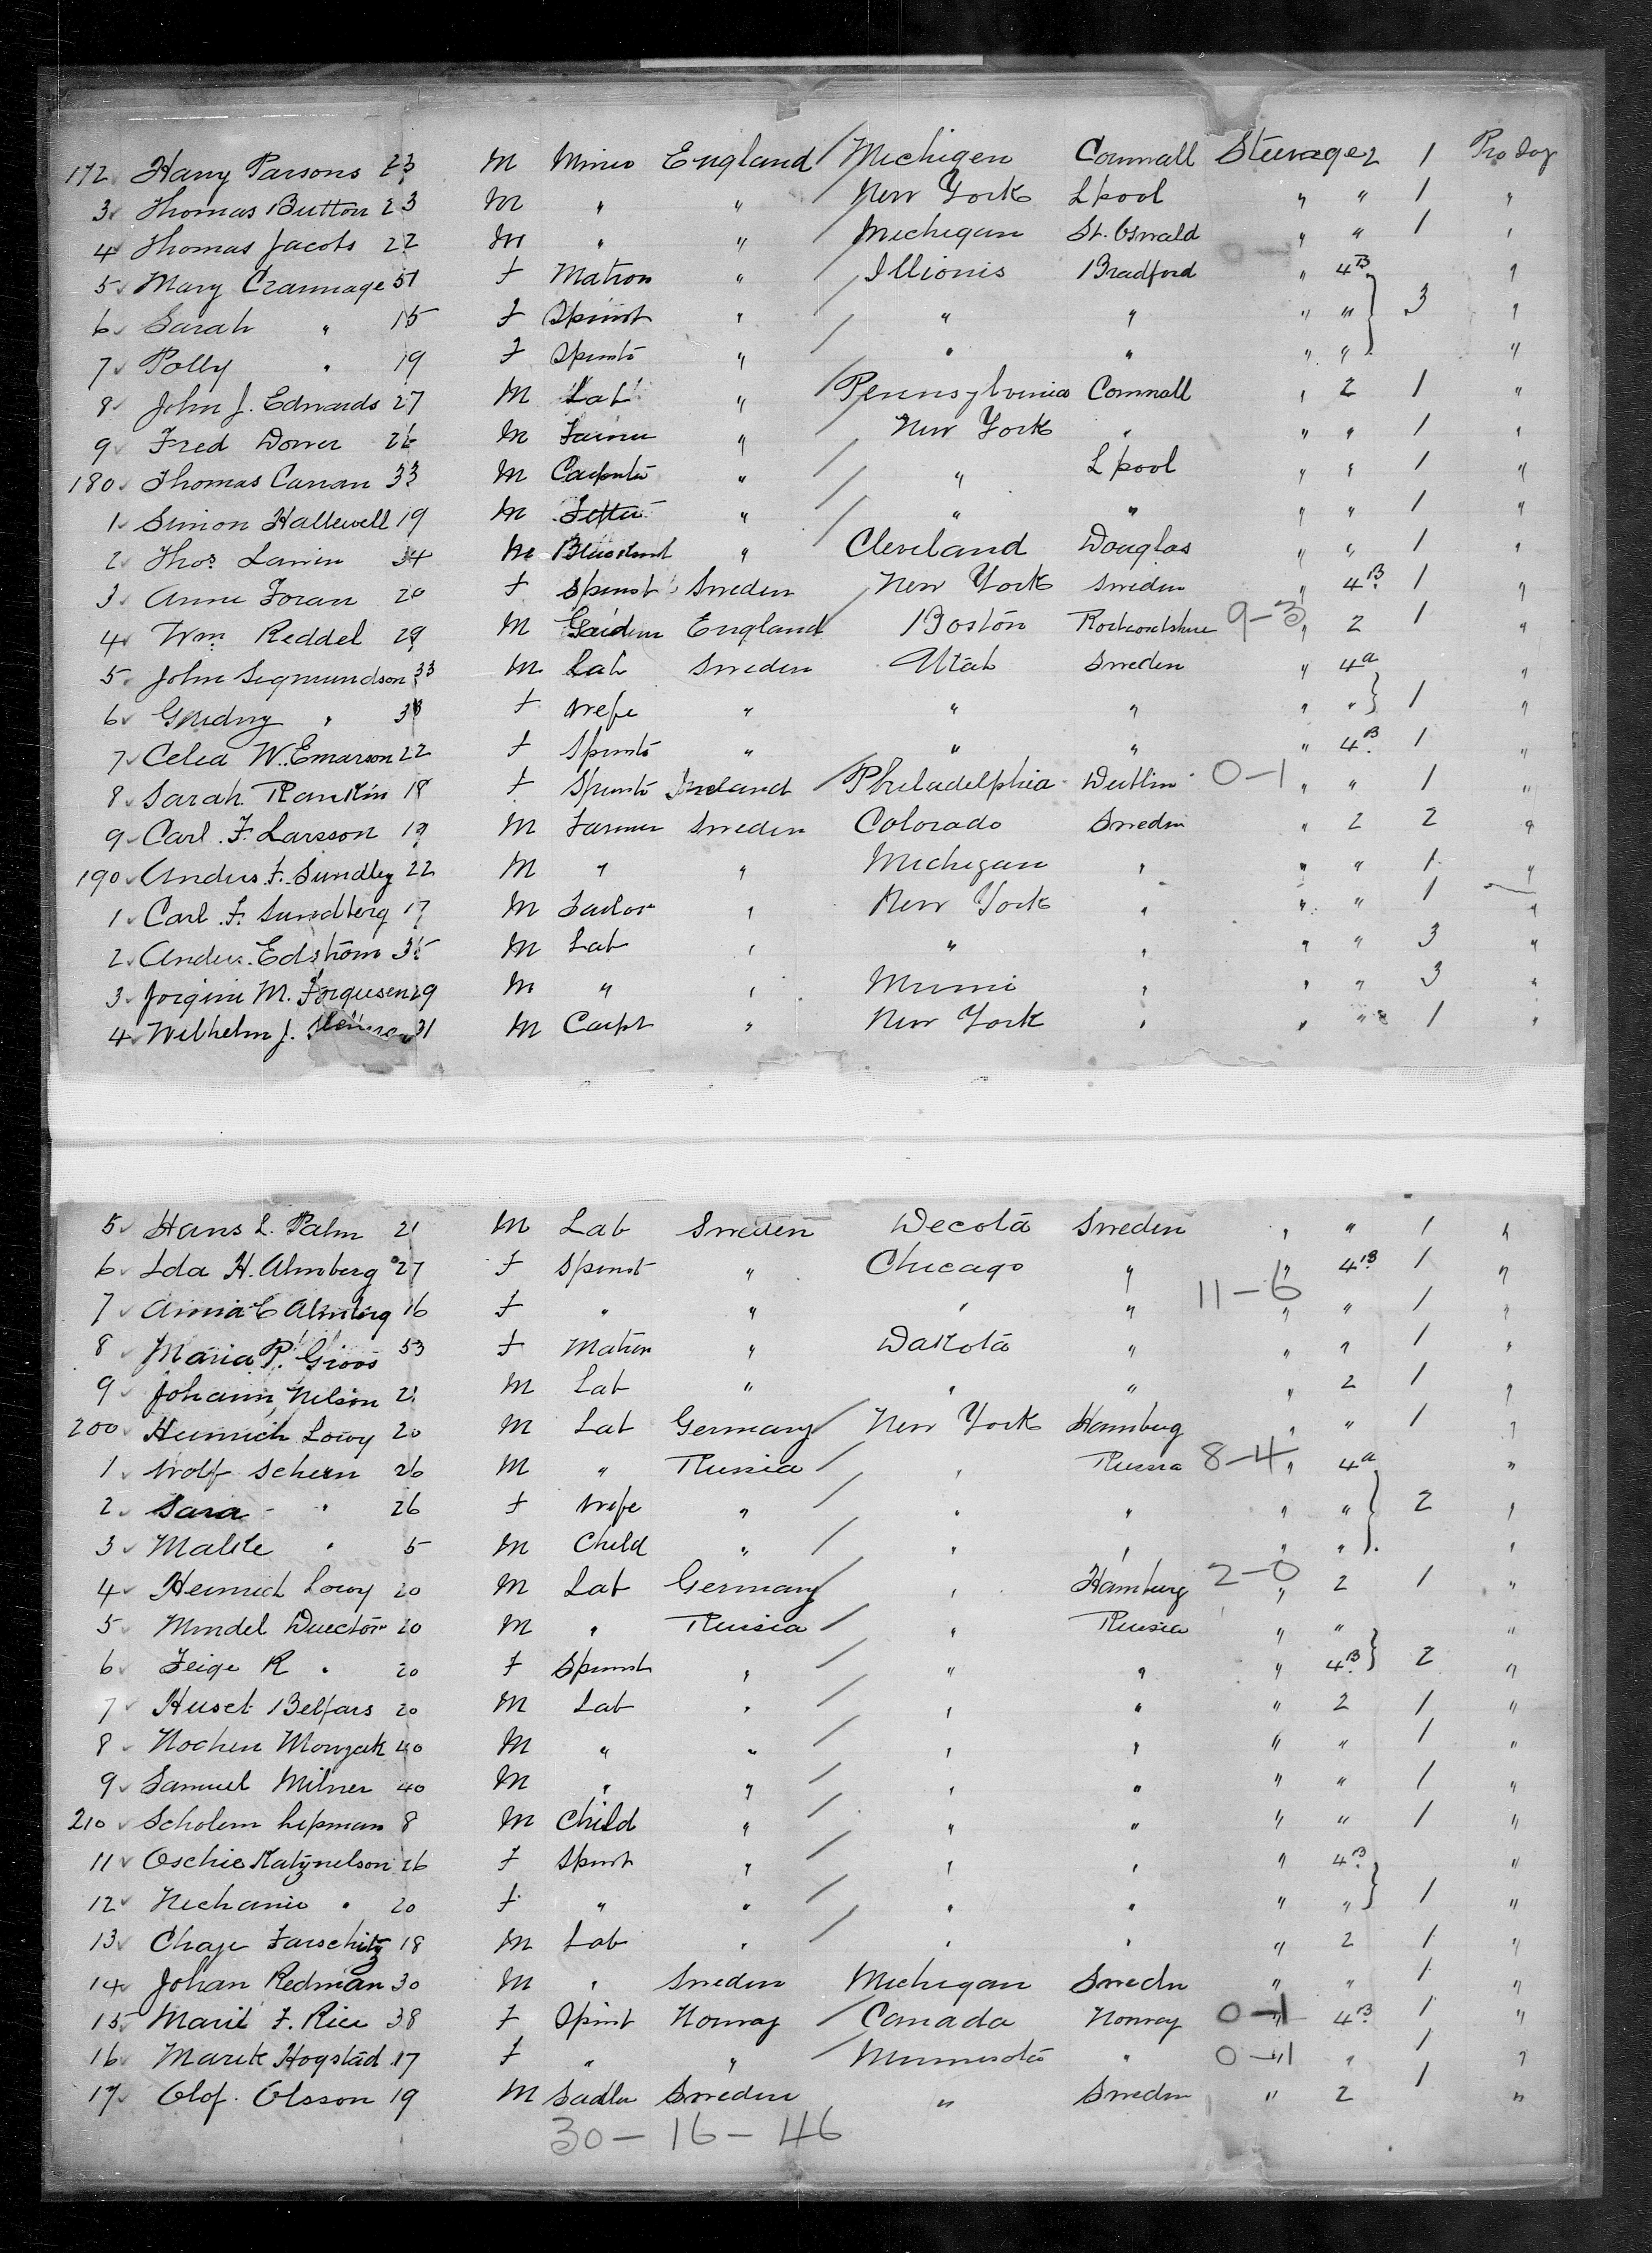 172 Harry Parsons 23 M Miner England / Michigen Cornwall Steerage 2 1 Pro Soj
3 Thomas Button 23 M " " / New York Lpool " " 1 "
4 Thomas Jacobs 22 M " " / Michegan St. Oswald " " 1 "
5 Mary Crannage 51 F Matron " / Illionis Bradford 0- " 4B "
6 Sarah " 15 F Spinst " / " " " " } 3 "
7 Polly " 19 F Spinstr " / " " " " "
8 John J. Edwards 27 M Lab " / Pennsylvinia Cornwall " 2 1 "
9 Fred Dower 26 M Farmer " New York " " " 1 "
180 Thomas Curran 33 M Carpntr " / " Lpool " " 1 "
1 Simon Hallewell 19 M Fitter " / " " " " 1 "
2 Thos. 34 M " / Cleveland Douglas " " 1 "
3 Anna Foran 20 F Spinst Sweden New York Sweden " 4B 1 "
4 Wm. Reddel 29 M Gardner England / Boston 9-3 " 2 1 "
5 John Segmundson 33 M Lab Sweden Utah Sweden " 4a "
6 Gudny " 33 F Wife " " " " " } 1 "
7 Celia W. Emarson 22 F Spinstr " " " " 4B 1 "
8 Sarah Rankin 18 F Spinstr Ireland / Philadelphia Dublin 0-1 " " 1 "
9 Carl F. Larsson 19 M Farmer Sweden Colorado Sweden " 2 2 "
190 Anders F. Sundley 22 M " " Michegan " " " 1 "
1 Carl F. Sundberg 17 M Tailor " New York " " " 1 "
2 Anders Edstrom 35 M Lab " " " " " 3 "
3 Jorgine M. Jorgusen 29 M " " Minni " " " 3 "
4 Wilhelm J. 31 M Carpt " New York " " " 1 "
5 Hans L. Palm 21 M Lab Sweden Decota Sweden " " 1 "
6 Ida H. Almberg 27 F Spinst " Chicago " " 4B 1 "
7 Anna C Almberg 16 F " " " " 11-6 " " 1 "
8 Maria P. Gioos 53 F Matron " Dakota " " " 1 "
9 Johann Nelson 21 M Lab " " " " 2 1 "
200 Heinrich Lowy 20 M Lab Germany / New York Hamburg " " 1 "
1 Wolf Schern 26 M " Russia / " Russia 8-4 " 4a "
2 Sara " 26 F Wife " / " " " " } 2 "
3 Malke " 5 M Child " / " " " " "
4 Heinrich Lowy 20 M Lab Germany / " Hamburg 2-0 " 2 1 "
5 Mindel Director 20 M " Russia / " Russia " " "
6 Feige R " 20 F Spinst " / " " " 4B } 2 "
7 Huset Belfars 20 M Lab " / " " " 2 1 "
8 Nochen Monzak 40 M " " / " " " " 1 "
9 Samuel Milner 40 M " " / " " " " 1 "
210 Scholem Lipman 8 M Child " / " " " " 1 "
11 Oschie Katznelson 26 F Spinst " / " " " 4B "
12 Nechanie " 20 F " " / " " " " } 1 "
13 Chaje Farschitz 18 M Lab " / " " " 2 1 "
14 Johan Redman 30 M " Sweden Michegan Swedn " " 1 "
15 Marit F. Rice 38 F Spinst Norway / Canada Norway 0-1 " 4B 1 "
16 Marit Hogstad 17 F " " / Minnesota " 0-1 " " 1 "
17 Olof Olsson 19 M Sadler Sweden " Sweden " 2 1 "
30 - 16 - 46